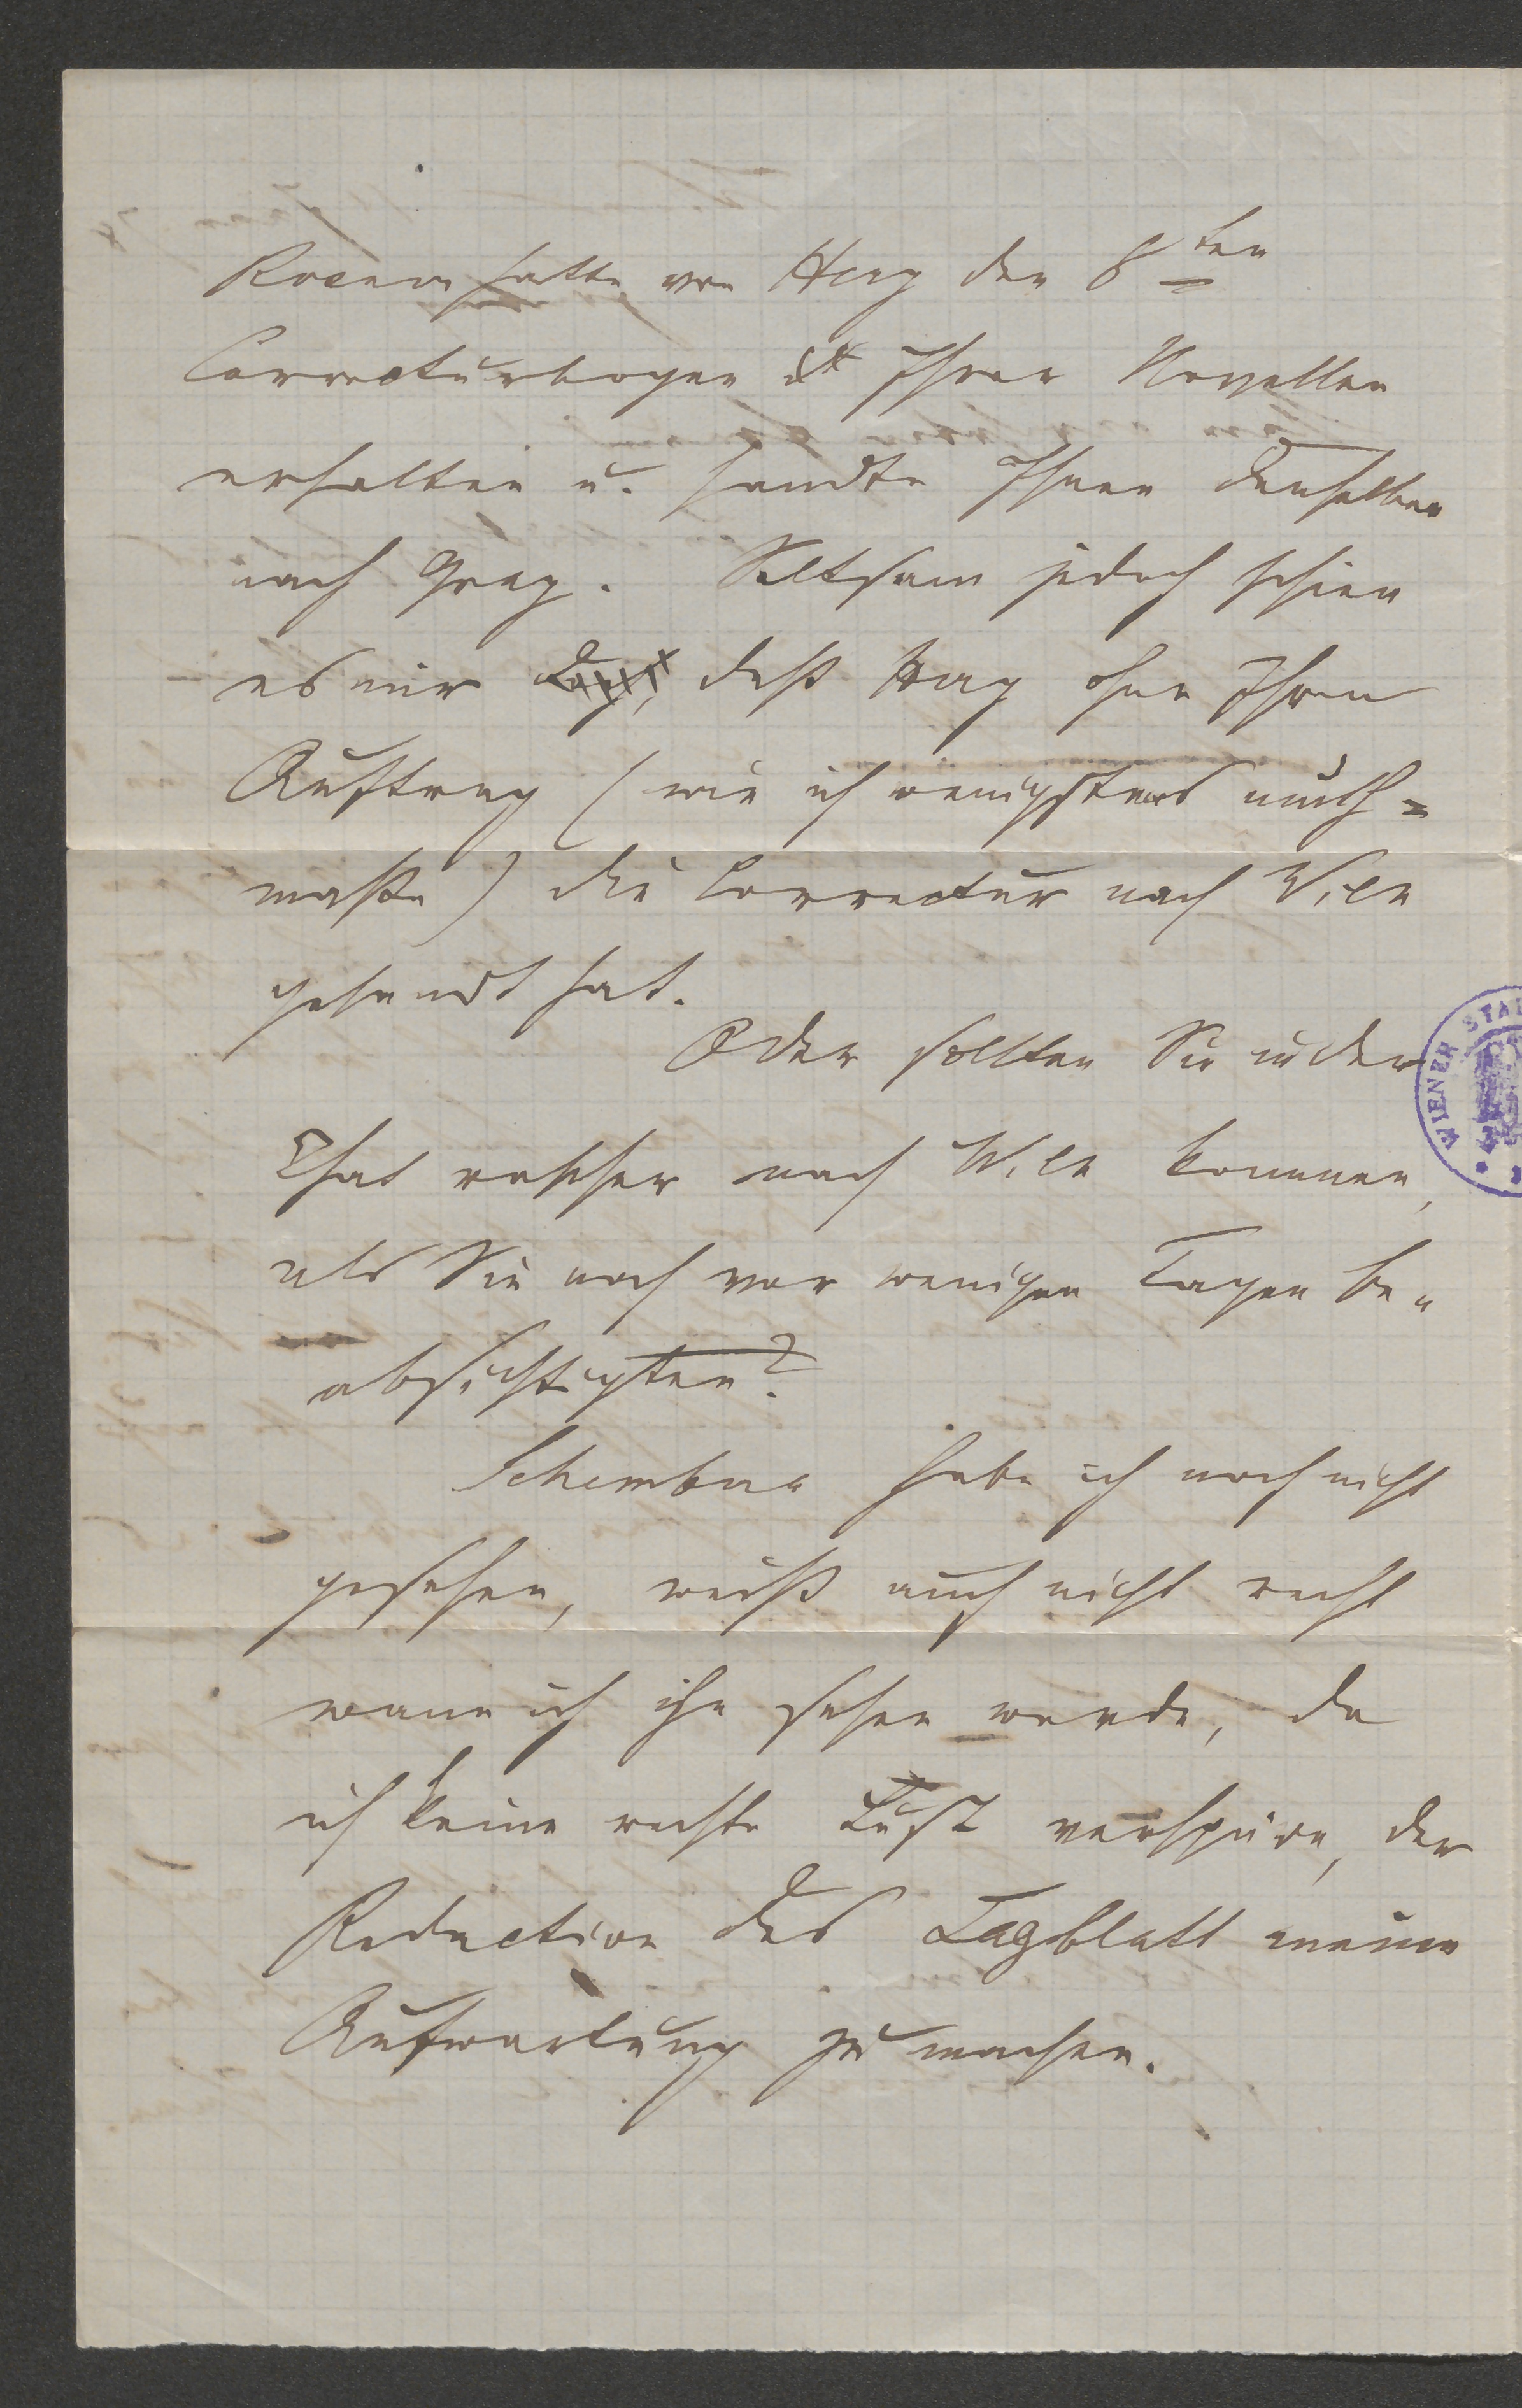 Rosner hatte von Hay den 8ten
Correcturbogen Ihrer Novellen
erhalten u. sandte Ihnen denselben
nach Graz. Seltsam jedoch schien
es mir, daß Hay ohne Ihren
Auftrag (wie ich wenigstens muth=
maße) die Correctur nach Wien
gesandt hat.
Oder sollten Sie in der
That rascher nach Wien kommen,
als Sie noch vor wenigen Tagen be=
absichtigten?
Schembera habe ich noch nicht
gesehen, weiß auch nicht recht
wann ich ihn sehen werde, da
ich keine rechte Lust verspüre, der
Redaction des Tagblatt meine
Aufwartung zu machen.
WIENER STA